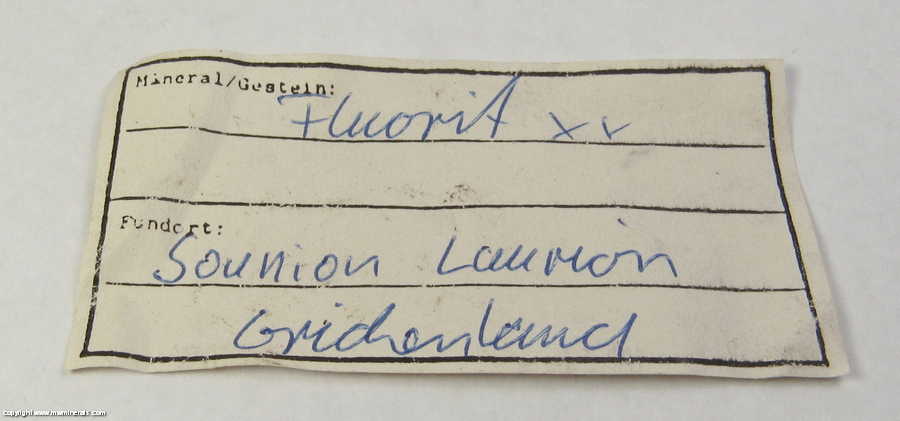 Mineral/Gestein:
Fluorit xx
Fundort:
Sounion Laurion
Grichenland
copyright www.mwminerals.com